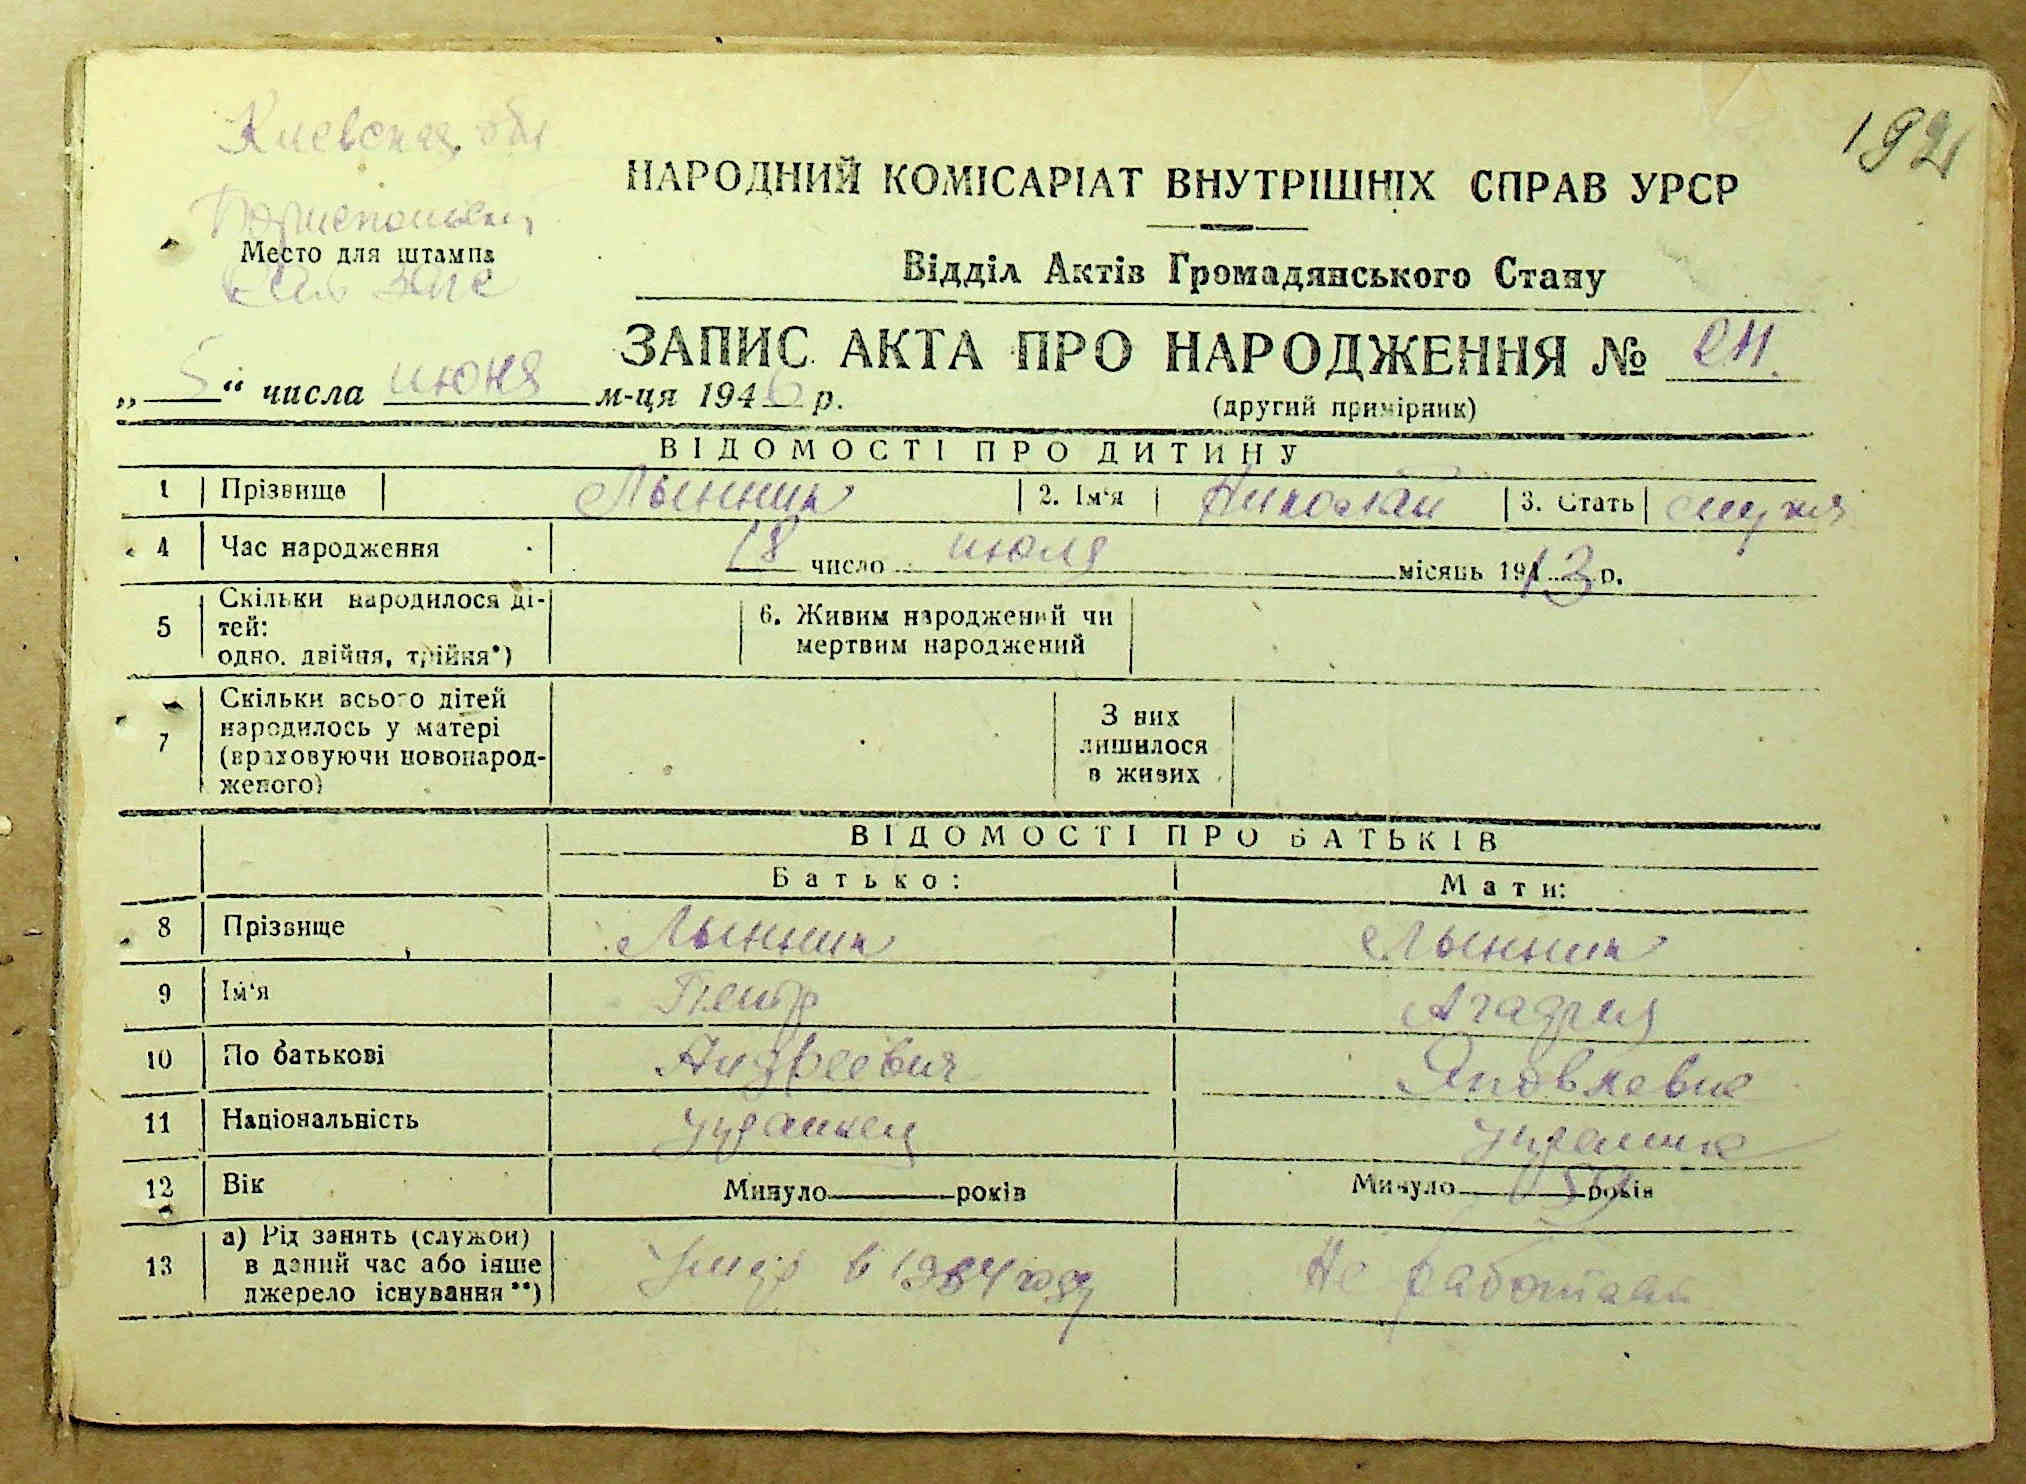 192
Киевская обл
НАРОДНИЙ КОМІСАРІАТ ВНУТРІШНІХ СПРАВ УРСР
Бориспольск,
Место для штампа
Відділ Актів Громадянського Стану
ЗАПИС АКТА ПРО НАРОДЖЕННЯ №
„ 5 “ числа июня м-ця 1946 р.
(другий примірник)
ВІДОМОСТІ ПРО ДИТИНУ
1 Прізвище Лынник 2. Ім'я Николай 3. Стать мужя
4 Час народження 18 число июля місяць 1913 р.
5 Скільки народилося ді-
тей:
одно, двійня, трійня*)
6. Живим народжений чи
мертвим народжений
7 Скільки всього дітей
народилось у матері
(враховуючи новонарод-
женого)
З них
лишилося
в живих
ВІДОМОСТІ ПРО БАТЬКІВ
Батько: Мати:
8 Прізвище Лынник Лынник
9 Ім'я Петр
10 По батькові Андреевич Яковлевна
11 Національність украинец украинка
12 Вік Минуло років Минуло років
13 а) Рід занять (служби)
в даний час або інше
джерело існування**)
Умер в 1934 году Не работает